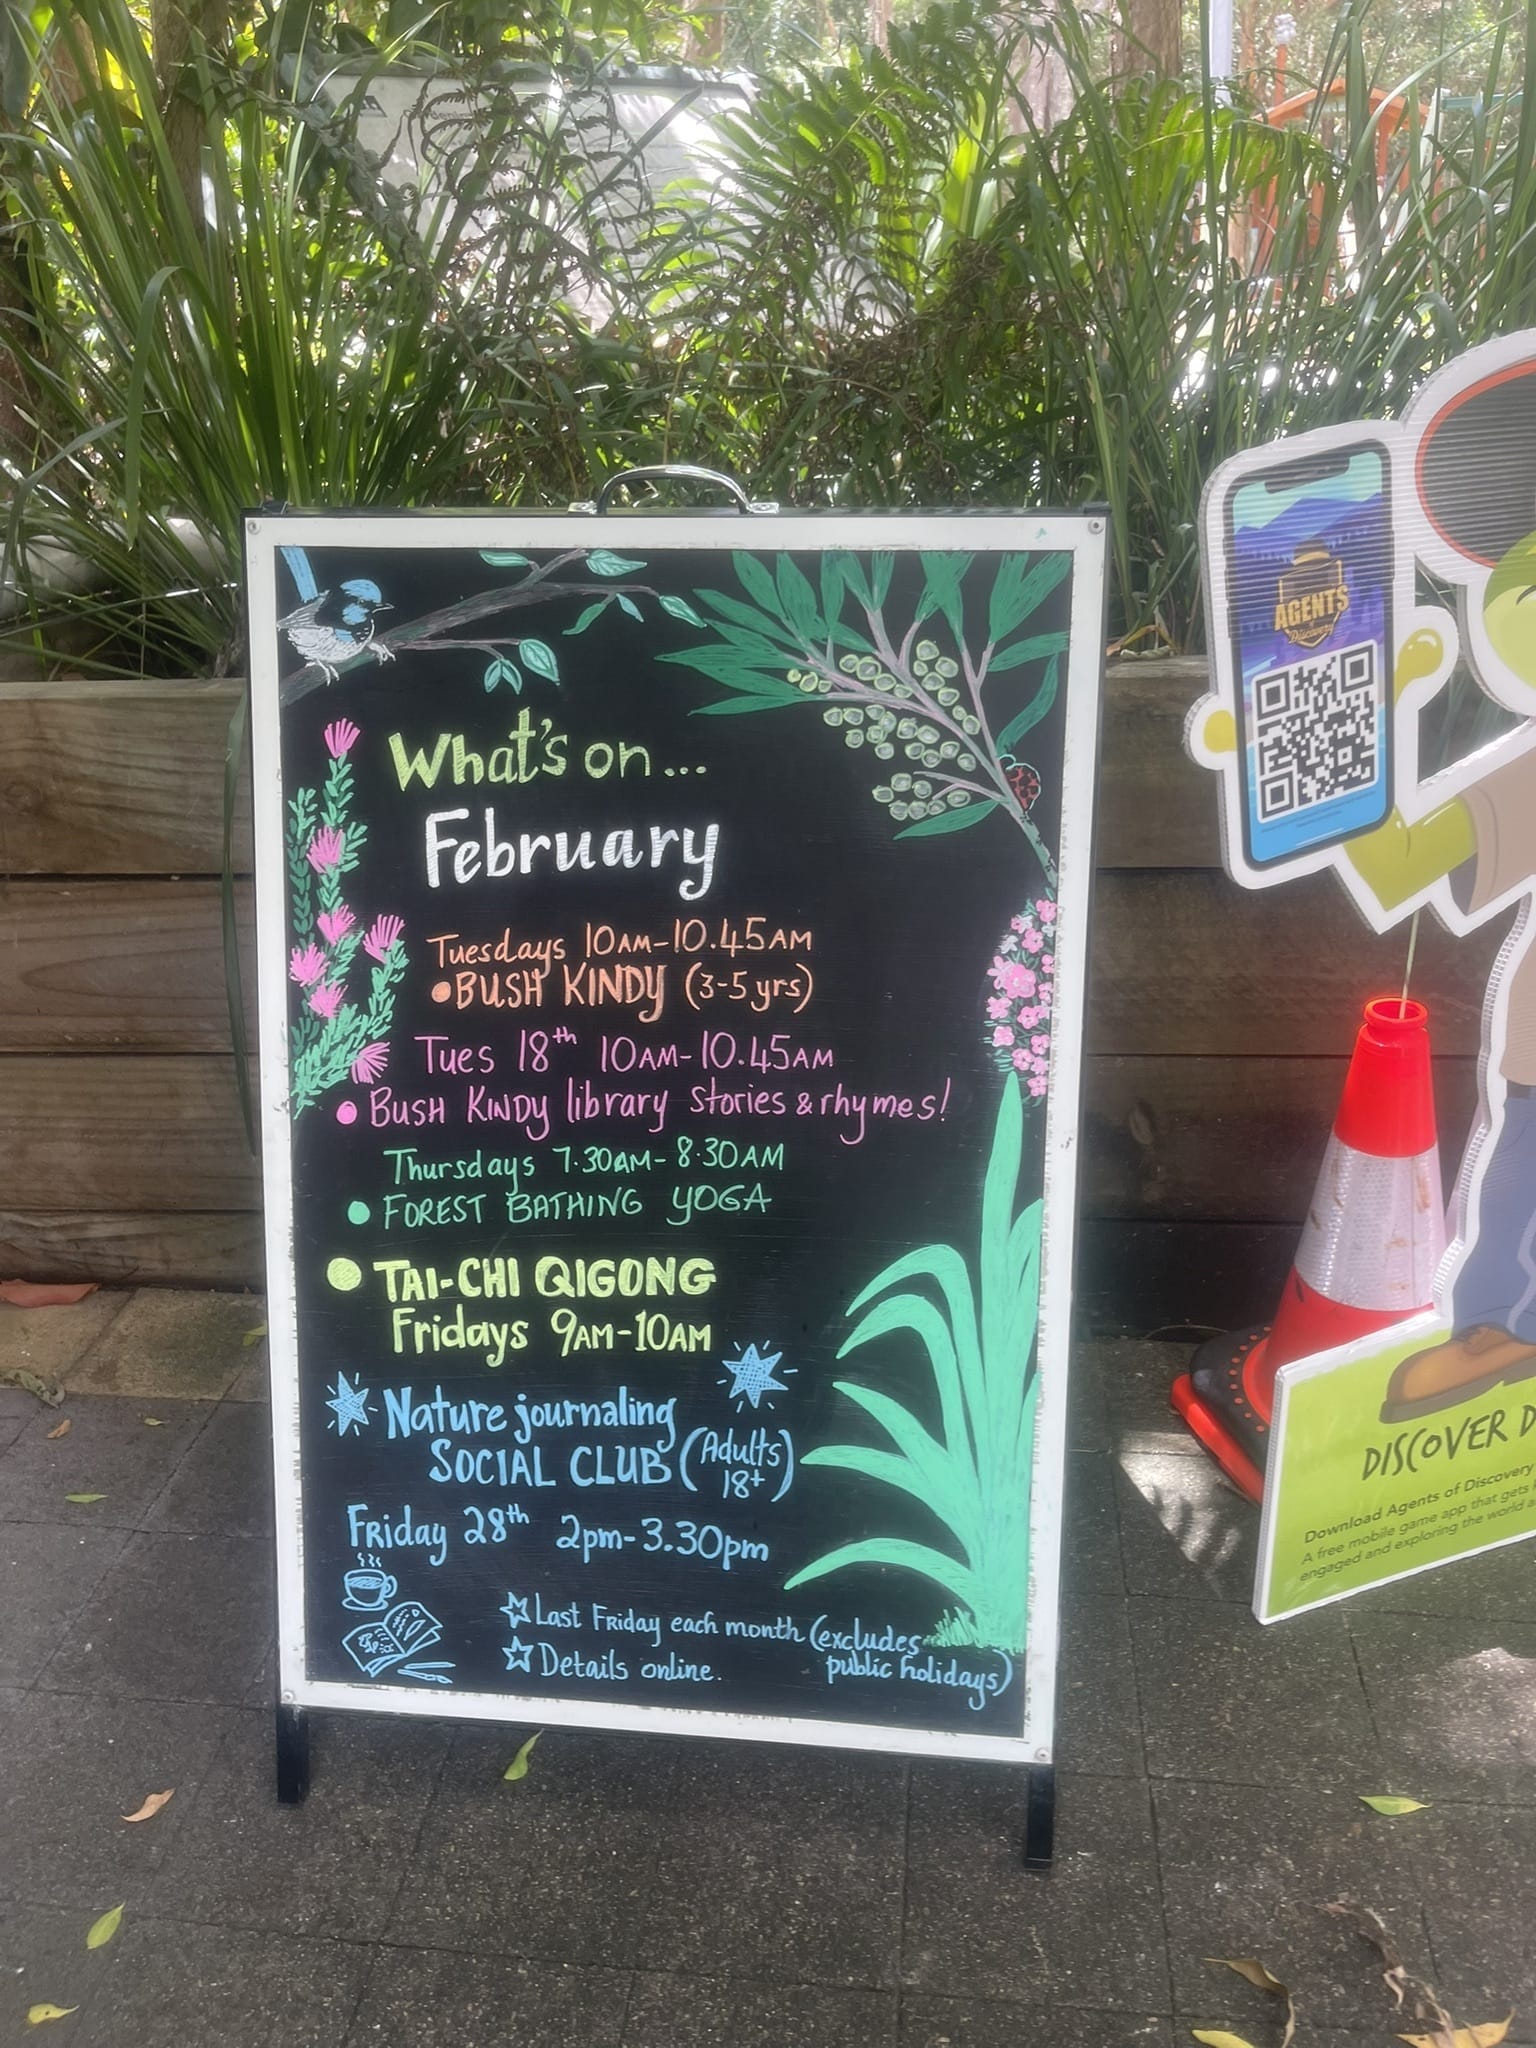 What's on...
February
Tuesdays 10AM-10.45AM
• BUSH KINDY (3-5 yrs)
Tues 18th 10AM-10.45AM
• BUSH KINDY library stories & rhymes!
Thursdays 7.30AM-8.30AM
• FOREST BATHING YOGA
• TAI-CHI QIGONG
Fridays 9AM-10AM
Nature journaling
SOCIAL CLUB (Adults 18+)
Friday 28th 2pm-3.30pm
☆ Last Friday each month (excludes
public holidays)
☆ Details online.
AGENTS
Discovery
DISCOVER
Download Agents of Discovery
A free mobile game app that gets
engaged and exploring the world